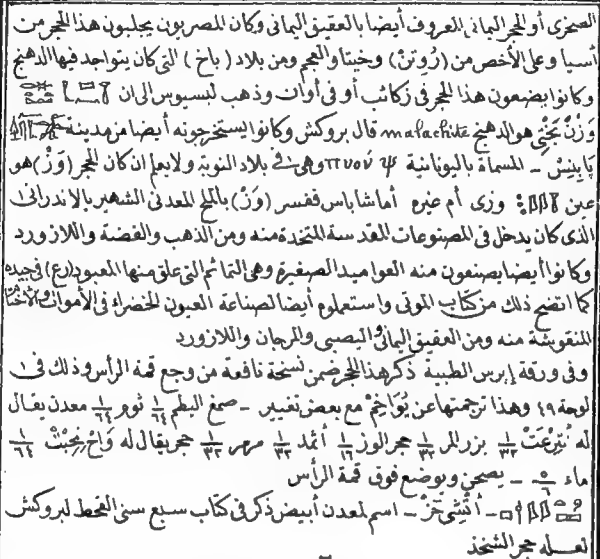 الصخرى أو الحجر اليمانى المعروف أيضا بالعقيق اليمانى وكان المصريون يجلبون هذا الحجر من
أسيا وعلى الأخص من (روتن) وخيتا والعجم ومن بلاد (باخ) التى كان يتواجد فيها الدهنج
وكانوا يضعون هذا الحجر فى زكائب أو فى أوان وذهب لبسيوس الى ان
وزن هو الدهنج malachite قال بروكش وكانوا يستخرجونه أيضا من مدينة
پاپنيس - المسماة باليونانية وهى فى بلاد النوبة ولا يعلم ان كان الحجر (وز) هو
عين وزى أم غيره أما شاباس ففسر (وز) بالملح المعدنى الشهير بالاندرانى
الذى كان يدخل فى المصنوعات المقدسة المتخذة منه ومن الذهب والفضة واللازورد
وكانوا أيضا يصنعون منه العواميد الصغيرة وهى التمائم التى علق منها المعبود (رع) فى جيده
كما اتضح ذلك من كتاب الموتى واستعملوه أيضا لصناعة العيون الخضراء فى الأموات
المنقوشة منه ومن العقيق اليمانى واليصبى والمرجان واللازورد
وفى ورقة إبرس الطبية ذكر هذا الحجر ضمن نسخة نافعة من وجع قمة الرأس وذلك فى
لوحة ٤٩ وهذا ترجمتها عن يواخيم مع بعض تغيير - صمغ البطم ١/٦٤ ثوم ١/٦٤ معدن يقال
له ١/٣٢ بزر المر ١/٣٢ حجر الوز ١/١٦ أثمد ١/٣٢ مرهر ١/٣٢ حجر يقال له ١/٦٤
ماء - يصحن ويوضع فوق قمة الرأس
- اسم لمعدن أبيض ذكر فى كتاب سبع سنى القحط لبروكش
لعله حجر الشخذ